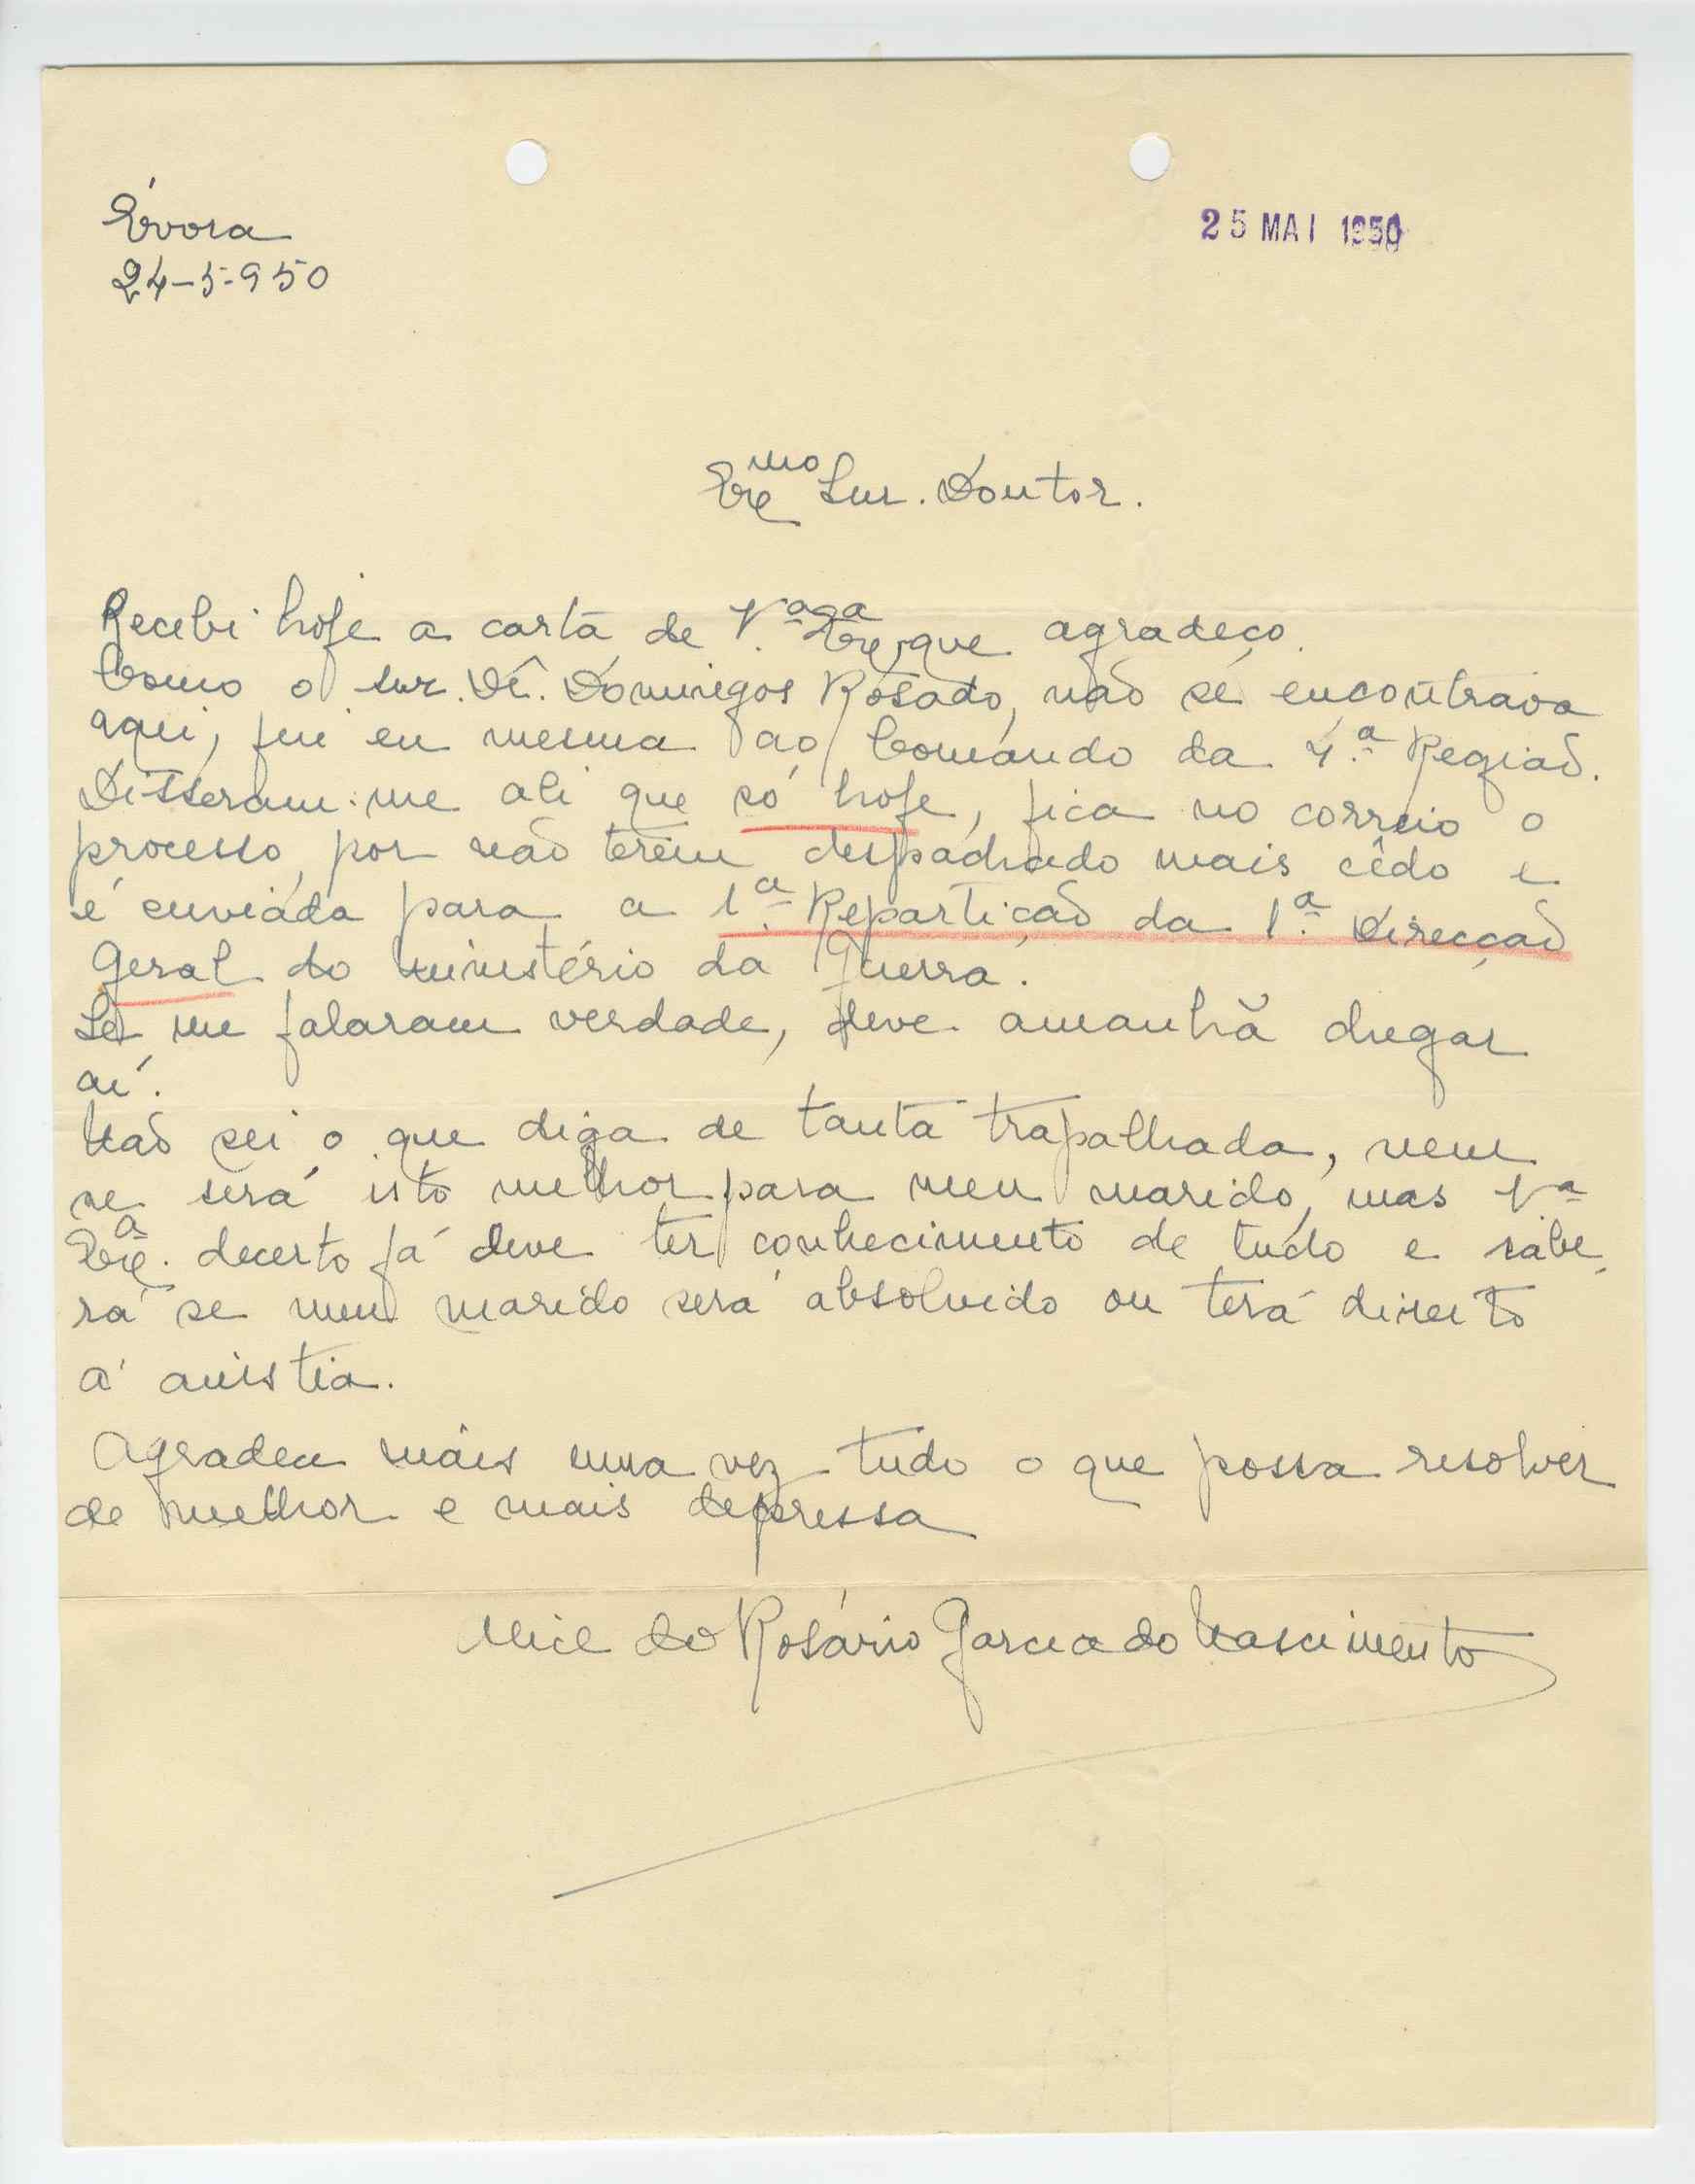 Évora
25 MAI 1950
24-5-950
Exmo Snr. Doutor.
Recebi hoje a carta de V.ª Exª, que agradeço.
Como o snr. Dr. Domingos Rosado, não se encontrava
aqui, fui eu mesma ao Comando da 4.ª Região.
Disseram-me ali que só hoje, fica no correio o
processo, por não terem despachado mais cêdo e
é enviada para a 1.ª Repartição da 1.ª Direcção
Geral do ministério da Guerra.
Se me falaram verdade, deve amanhã chegar
aí.
Não sei o que diga de tanta trapalhada, nem
se será isto melhor para meu marido, mas V.ª
Exª. decerto já deve ter conhecimento de tudo e sabe-
rá se meu marido será absolvido ou terá direito
á anistia.
Agradeu mais uma vez tudo o que possa resolver
de melhor e mais depressa
Alice do Rosário Garcia do Nascimento